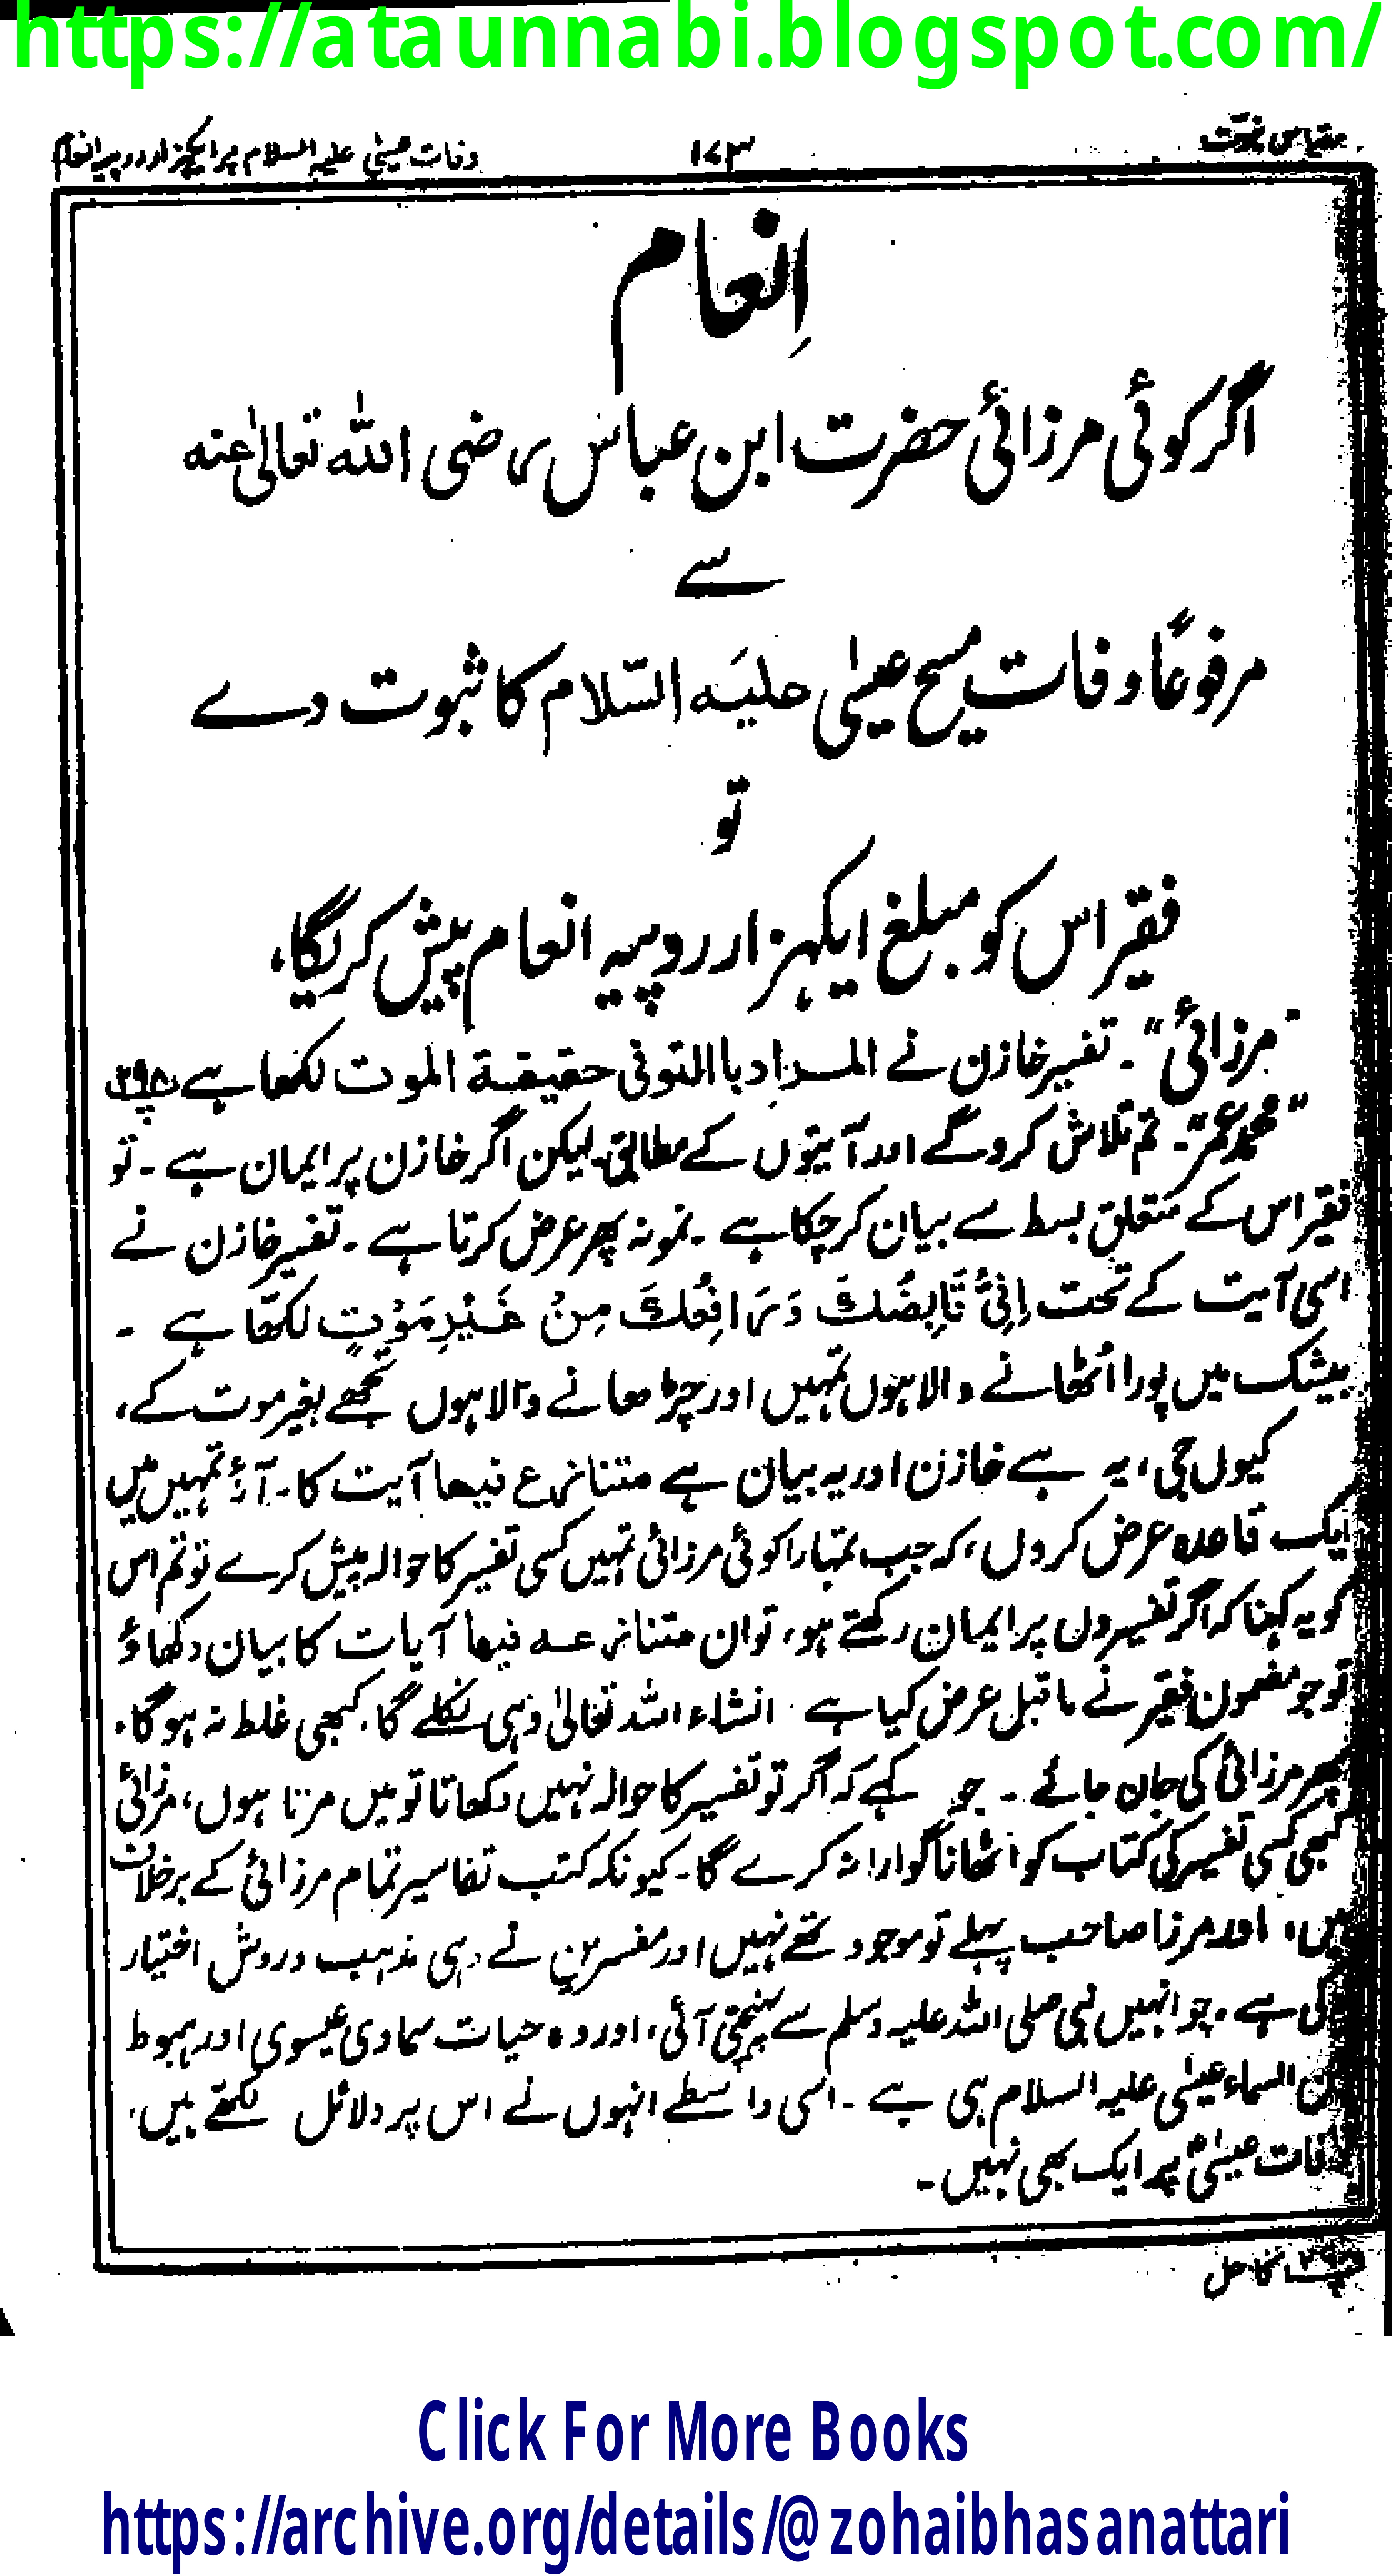 https://ataunnabi.blogspot.com/
مقیاس نبوّت
۱۷۳
وفات عیسٰی علیہ السلام پر ایکہزار روپیہ انعام
اِنعام
اگر کوئی مرزائی حضرت ابن عباس رضی اللہ تعالیٰ عنہ
سے
مرفوعًا وفات مسیح عیسٰی علیہ السّلام کا ثبوت دے
تو
فقیر اس کو مبلغ ایکہزار روپیہ انعام پیش کریگا،
"مرزائی"۔ تفسیر خازن نے المراد باالتوفی حقیقة الموت لکھا ہے
"محمد عمر"۔ تم تلاش کرو گے اور آیتوں کے مطالق۔ لیکن اگر خازن پر ایمان ہے ۔ تو
فقیر اس کے متعلق بسط سے بیان کر چکا ہے ۔ نمونہ پھر عرض کرتا ہے ۔ تفسیر خازن نے
اسی آیت کے تحت اِنِّیْ قَابِضُكَ وَرَافِعُكَ مِنْ غَیْرِ مَوْتٍ لکھا ہے ۔
بیشک میں پورا اُٹھانے والا ہوں تمہیں اور چڑھانے والا ہوں تجھے بغیر موت کے،
کیوں جی، یہ ہے خازن اور یہ بیان ہے متنازع فیھا آیت کا۔ آؤ تمہیں میں
ایک قاعدہ عرض کر دوں، کہ جب تمہارا کوئی مرزائی تمہیں کسی تفسیر کا حوالہ پیش کرے تو تم اس
کو یہ کہنا کہ اگر تفسیروں پر ایمان رکھتے ہو، تو ان متنازعہ فیھا آیات کا بیان دکھاؤ
تو جو مضمون فقیر نے ماقبل عرض کیا ہے انشاء اللہ تعالیٰ وہی نکلے گا، کبھی غلط نہ ہو گا،
پھر مرزائی کی جان جائے ۔ جو کہے کہ اگر تو تفسیر کا حوالہ نہیں دکھاتا تو میں مرتا ہوں، مرزائی
کبھی کسی تفسیر کی کتاب کو اٹھانا گوارا نہ کرے گا۔ کیونکہ کتب تفاسیر تمام مرزائی کے برخلاف
ہیں، اور مرزا صاحب پہلے تو موجود تھے نہیں اور مفسرین نے وہی مذہب و روش اختیار
کی ہے ۔ جو انہیں نبی صلی اللہ علیہ وسلم سے پہنچتی آئی، اور وہ حیات سماوی عیسوی اور ہبوط
من السماء عیسٰی علیہ السلام ہی ہے ۔ اسی واسطے انہوں نے اس پر دلائل لکھے ہیں،
وفات عیسٰیؑ پر ایک بھی نہیں ۔
کا حل
Click For More Books
https://archive.org/details/@zohaibhasanattari